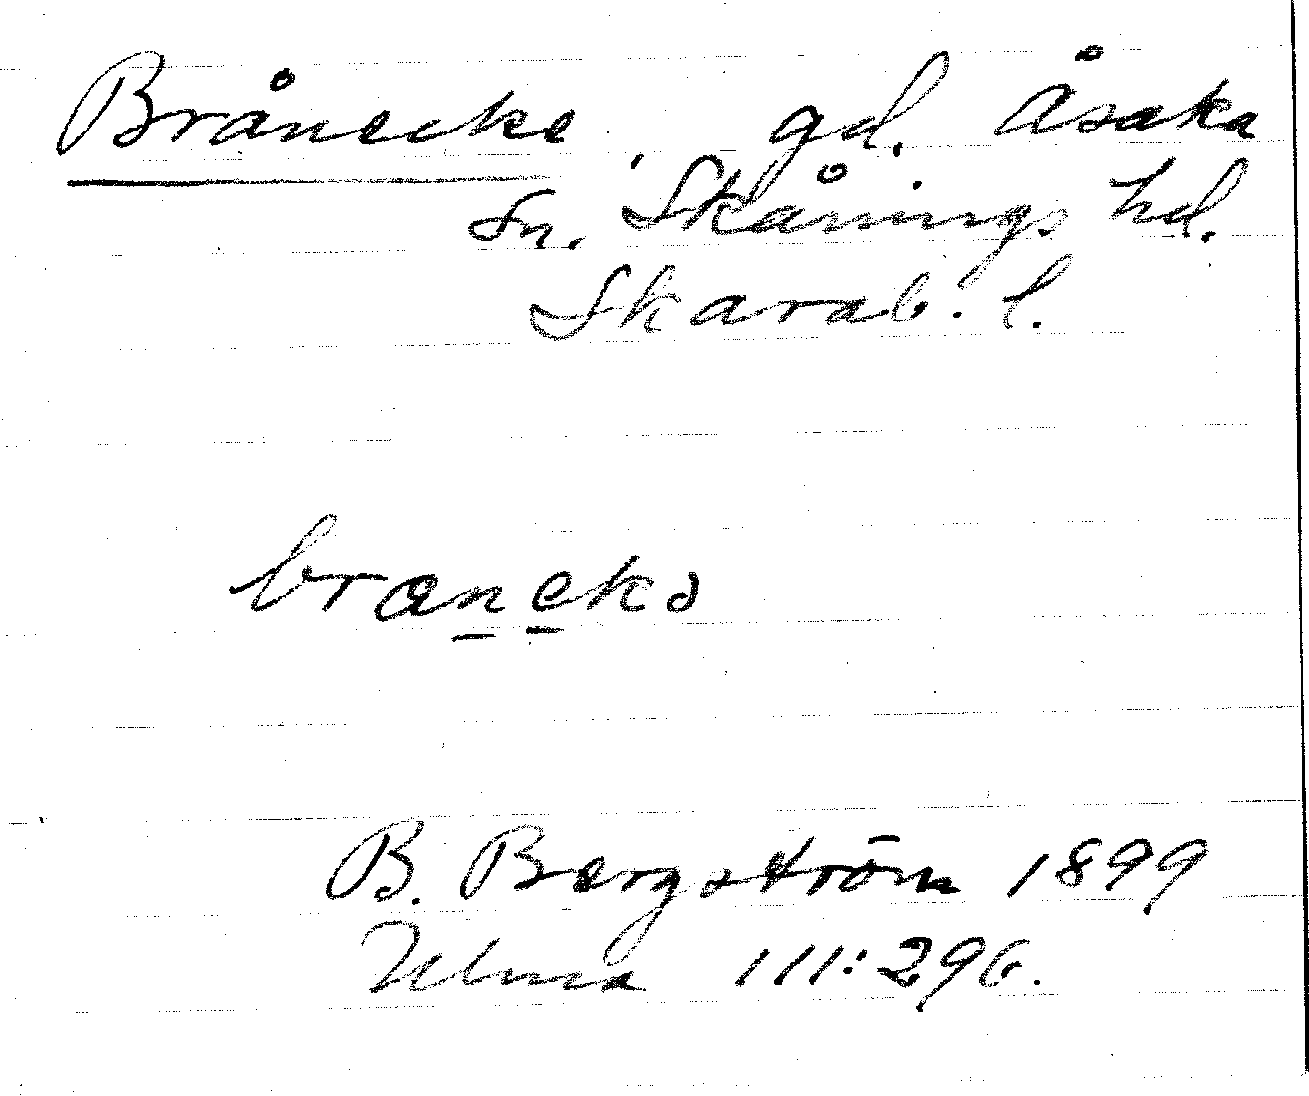 Brånecke gd. Åsaka
sn. Skånings hd.
Skarab. l.
branekə
B. Bergström 1899
Ulma 111:296.